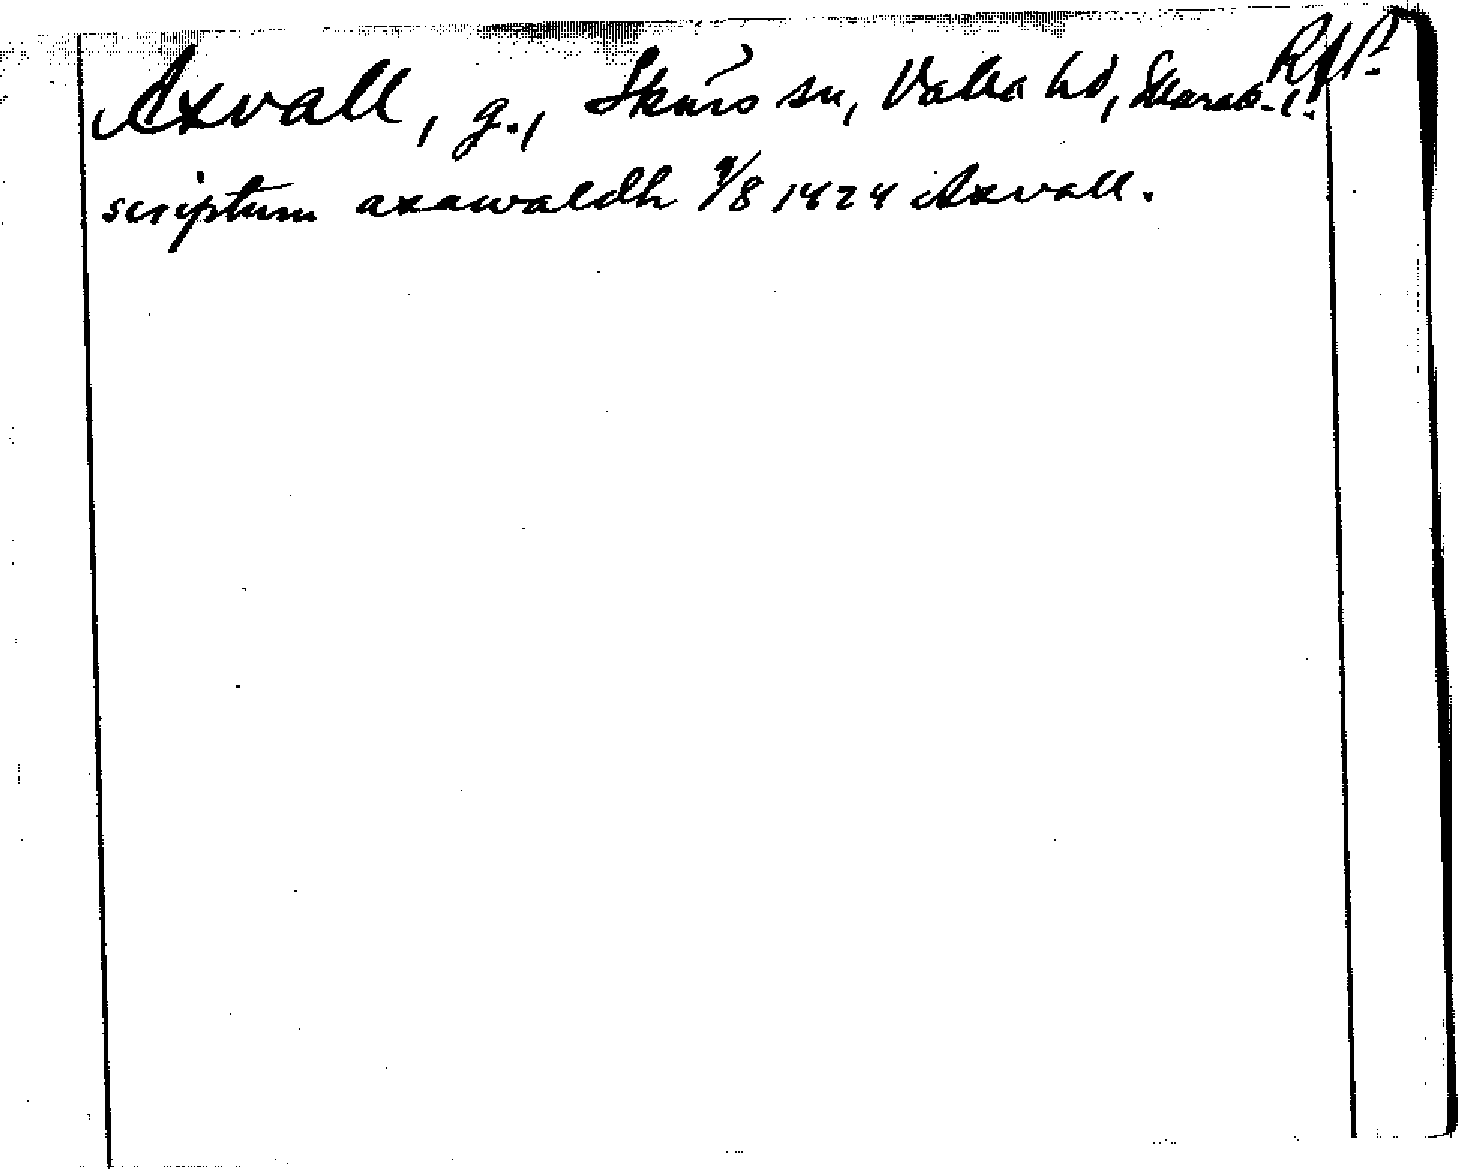 Axvall, g., Skärvs sn, Valle hd, Skarab. l. RAP.
scriptum axawaldh 9/8 1424 Axvall.